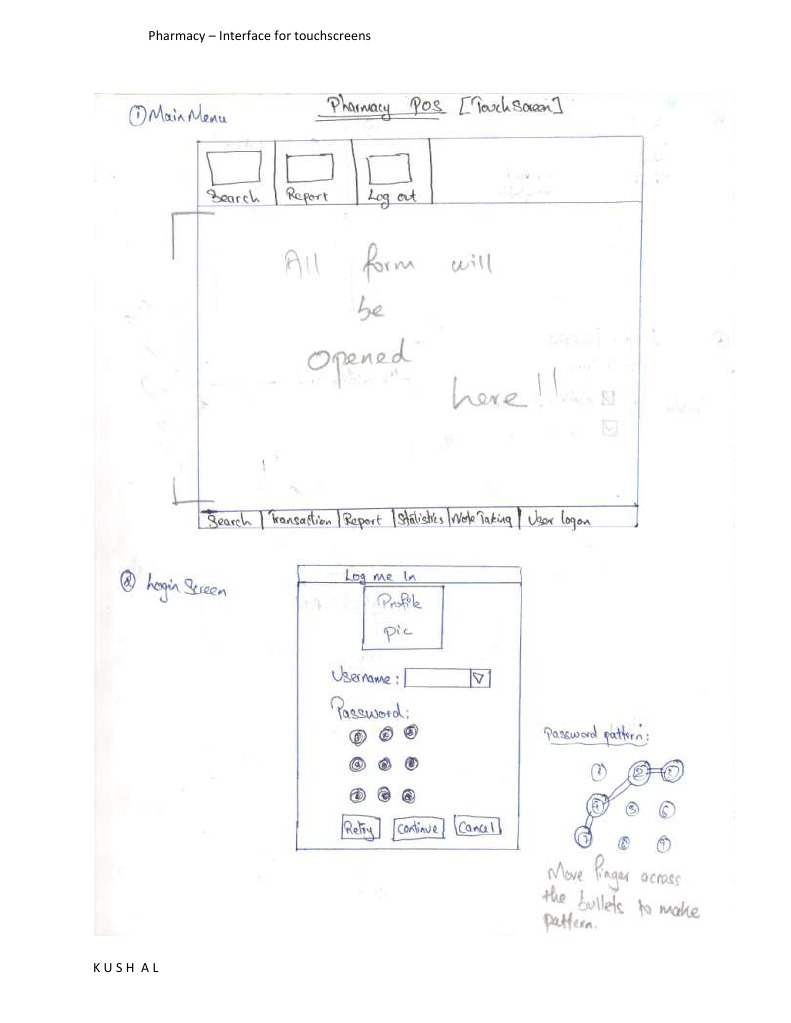 Pharmacy – Interface for touchscreens
Pharmacy POS [Touch Screen]
① Main Menu
Search Report Log out
All form will
be
opened
here!!
Search | Transaction | Report | Statistics | Note Taking | User logon
② Login Screen
Log me In
Profile
pic
Username:
Password:
Password pattern:
1 2 3
4 5 6
7 8 9
Retry Continue Cancel
Move finger across
the bullets to make
pattern.
KUSHAL